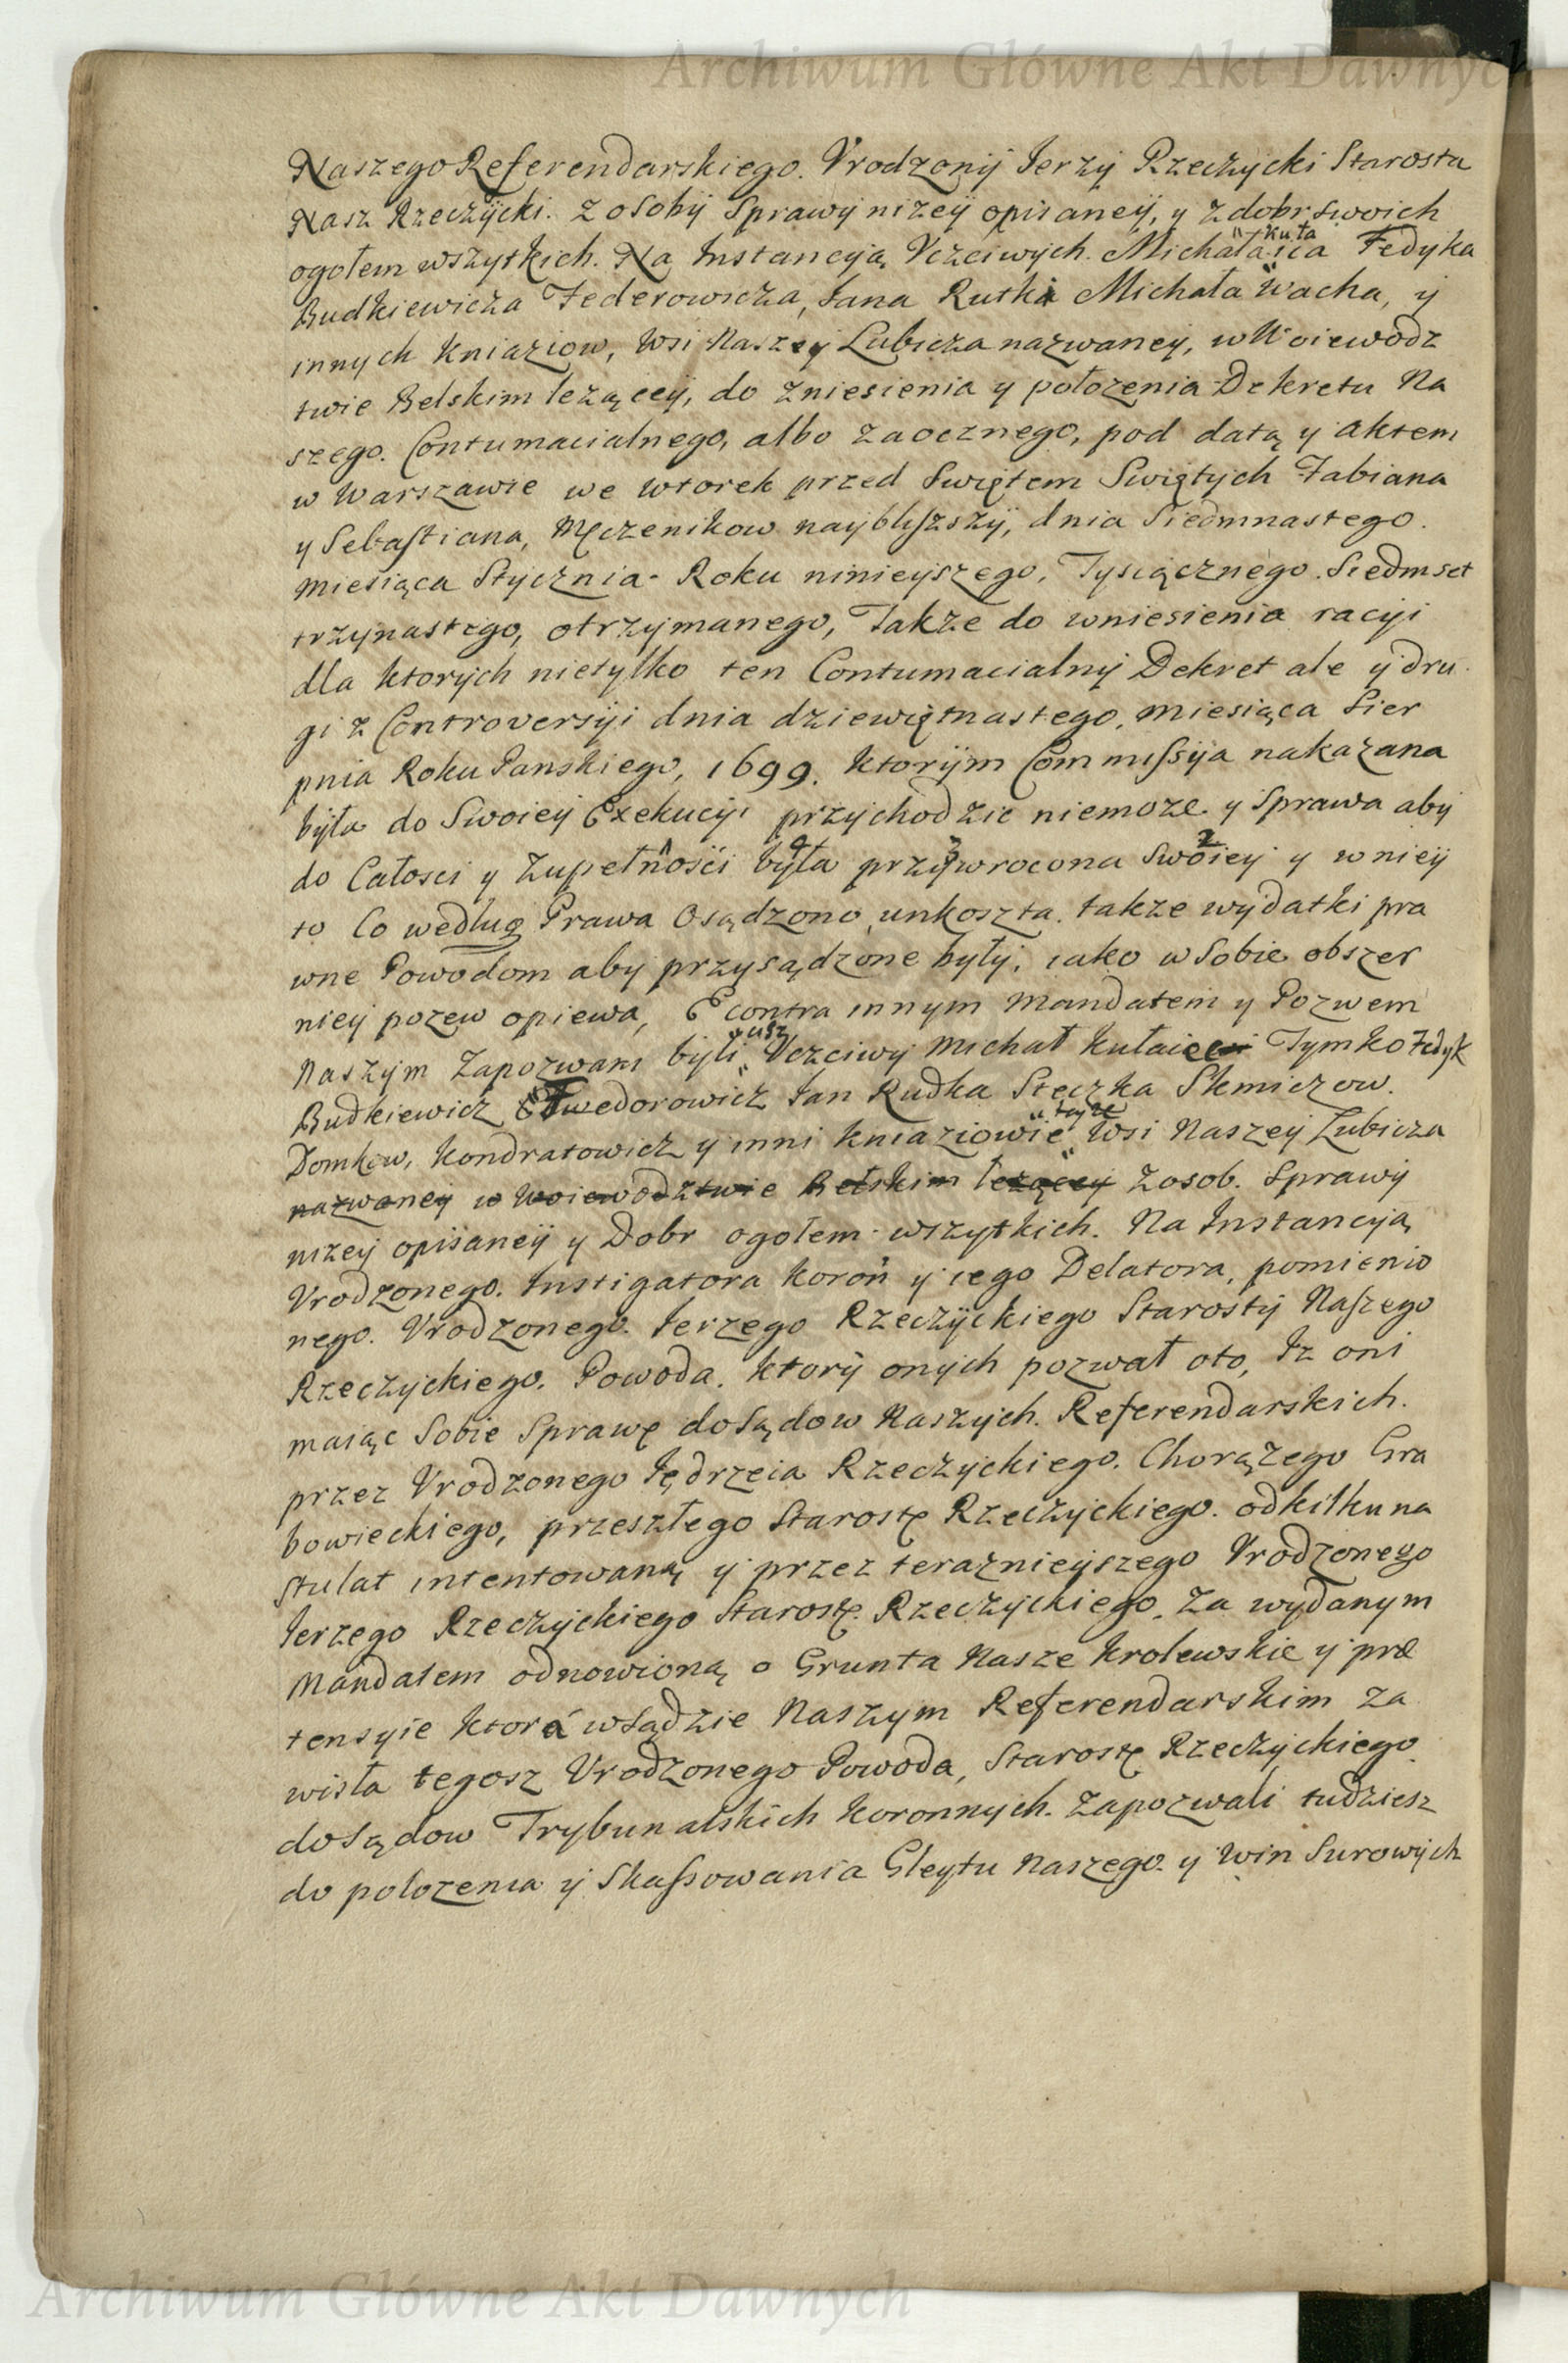 Archiwum Główne Akt Dawnych
Naszego Referendarskiego. Vrodzonÿ Jerzÿ Rzeczycki Starosta
Nasz Rzeczÿcki. z osobÿ Sprawÿ nizeÿ opisaneÿ, y z dobr swoich
ogołem wszytkich. Na Instancyią Vczciwych. Michała Kuła ica Fedyka
Budkiewicza Federowicza, Jana Rutki Michała Wacha, y
innych Kniaziow, Wsi Naszey Lubicza nazwaney, w Woiewodz
twie Belskim lezącey, do zniesienia y połozenia Dekretu Na
szego. Contumacialnego, albo zaocznego, pod datą y aktem
w Warszawie we wtorek przed Swiętem Swiętych Fabiana
y Sebastiana, Męczenikow naybliszszÿ, dnia Siedmnastego.
miesiąca Stycznia. Roku ninieyszego, Tysiącznego. Siedmset
trzynastego, otrzymanego, Takze do wniesienia racyi
dla ktorych nietylko ten Contumacialny Dekret ale y dru
gi z Controversyi dnia dziewiętnastego, miesiąca Sier
pnia Roku Panskiego, 1699. Ktorÿm Commissyia nakazana
była do Swoiey Exekucyi przychodzic niemoze. y Sprawa aby
do Całosci y Zupełnosci była przywrocona swoiey y w nieÿ
to Co według Prawa Osądzono, unkoszta. takze wydatki pra
wne Powodom aby przysądzone byłÿ, iako w Sobie obszer
niey pozew opiewa, E contra innym mandatem y Pozwem
Naszym Zapozwani byli yusz Vczciwy Michał Kułaic Tymko Fedyk
Budkiewicz Fwedorowicz Jan Rudka Steczka Slemiczow.
Domkow, Kondratowicz y inni Kniaziowie teyze Wsi Naszey Lubicza
nazwaney w Woiewodztwie Bełskim lezącey z osob. Sprawÿ
nizey opisaneÿ y Dobr ogołem wszytkich. Na Instancyią
Vrodzonego. Instigatora Koroñ y iego Delatora, pomienio
nego. Vrodzonego. Jerzego Rzeczÿckiego Starosty Naszego
Rzeczyckiego. Powoda. Ktorÿ onych pozwał oto, Iz oni
maiąc Sobie Sprawę do Sądow Naszych. Referendarskich.
przez Vrodzonego Jędrzeia Rzeczyckiego. Chorązego Gra
bowieckiego, przeszłego Starostę Rzeczyckiego. od kilku na
stu lat intentowaną y przez teraznieyszego Vrodzonego
Jerzego Rzeczyckiego Starostę. Rzeczyckiego. Za wydanym
Mandatem odnowioną o Grunta Nasze Krolewskie y præ
tensyie ktorá w Sądzie Naszym Referendarskim za
wisła tegosz Vrodzonego Powoda, Starostę Rzeczyckiego
do Sądow Trybunalskich Koronnych. Zapozwali tudziesz
do polozenia y Skassowania Gleytu Naszego. y win Surowych
Archiwum Główne Akt Dawnych